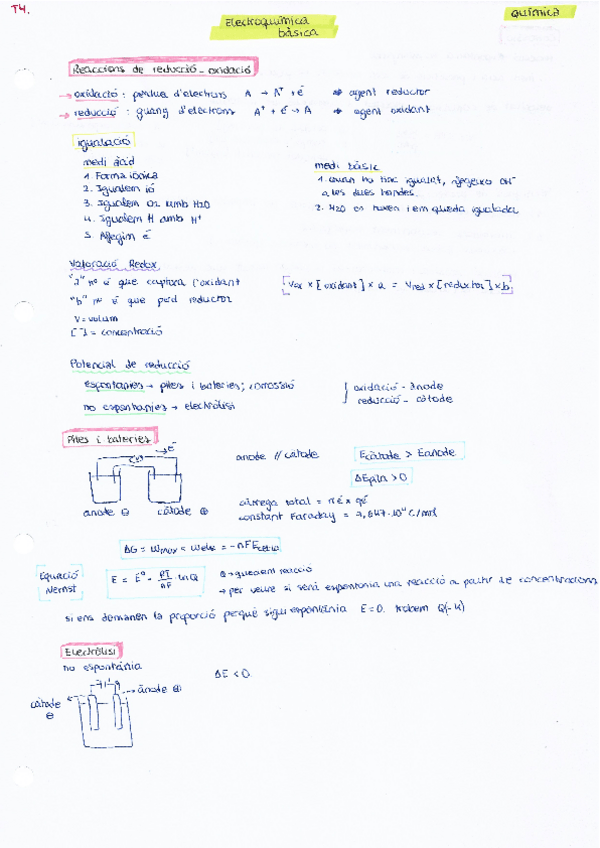 T4.
Electroquímica
bàsica
QUÍMICA
Reaccions de reducció-oxidació
→ oxidació: pèrdua d'electrons A → A⁺ + é ⇒ agent reductor
→ reducció: guany d'electrons A⁺ + é → A ⇒ agent oxidant
igualació
medi àcid
1. Forma iònica
2. Igualem ió
3. Igualem O2 amb H2O
4. Igualem H amb H⁺
5. Afegim é
medi bàsic
1. quan ho tinc igualat, afegeixo OH⁻
a les dues bandes.
2. H2O es moren i em queda igualada
Valoració Redox
"a" nº é que captura l'oxidant
"b" nº é que perd reductor
V = volum
[ ] = concentració
[Vox × [oxidant] × a = Vred × [reductor] × b]
Potencial de reducció
espontànies → piles i bateries; corrosió
no espontànies → electròlisi
oxidació - ànode
reducció - càtode
Piles i bateries
é
anode ⊖ càtode ⊕
anode // càtode
Ecàtode > Eanode
ΔEpila > 0
càrrega total = n é × qé
constant Faraday =
ΔG = Wmax = Welec = -nFE
Equació
Nernst
E = E° - RT/nF · lnQ
Q → quocient reacció
→ per veure si serà espontània una reacció a partir de concentracions
si ens demanen la proporció perquè sigui espontània E=0. trobem Q(=K)
Electròlisi
no espontània
ΔE < 0
ànode ⊕
càtode
⊖